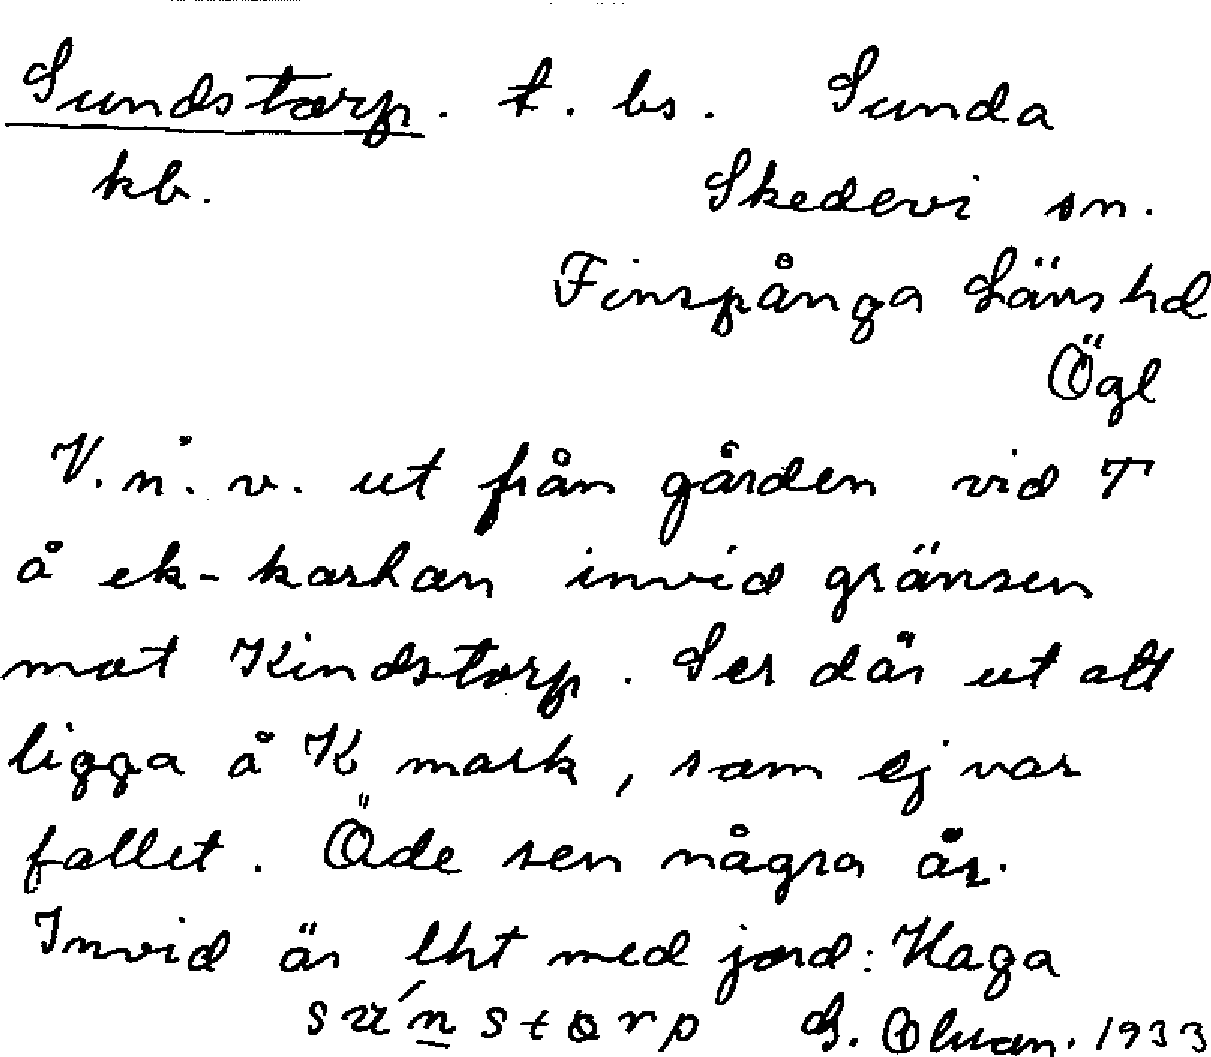 Sundstorp. t. bs. Sunda
kb. Skedevi sn.
Finspånga Läns hd
Ögl
V. n. v. ut från gården vid T
å ek-karhan invid gränsen
mot Kindstorp. Ser där ut att
ligga å K mark, som ej var
fallet. Öde sen några år.
Invid är lht med jord: Haga
1933